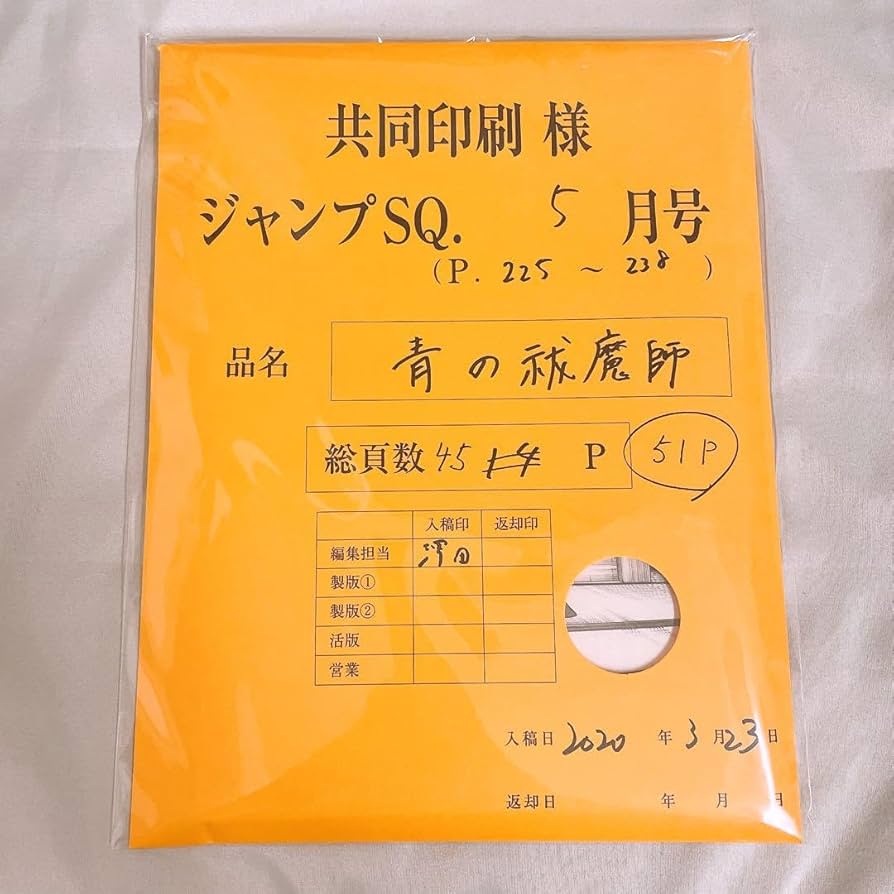 共同印刷 様
ジャンプSQ. 5 月号
(P. 225 ~ 238 )
品名 青の祓魔師
総頁数 45 14 P 51P
入稿印 返却印
編集担当 澤田
製版①
製版②
活版
営業
入稿日 2020 年 3 月 23 日
返却日 年 月 日